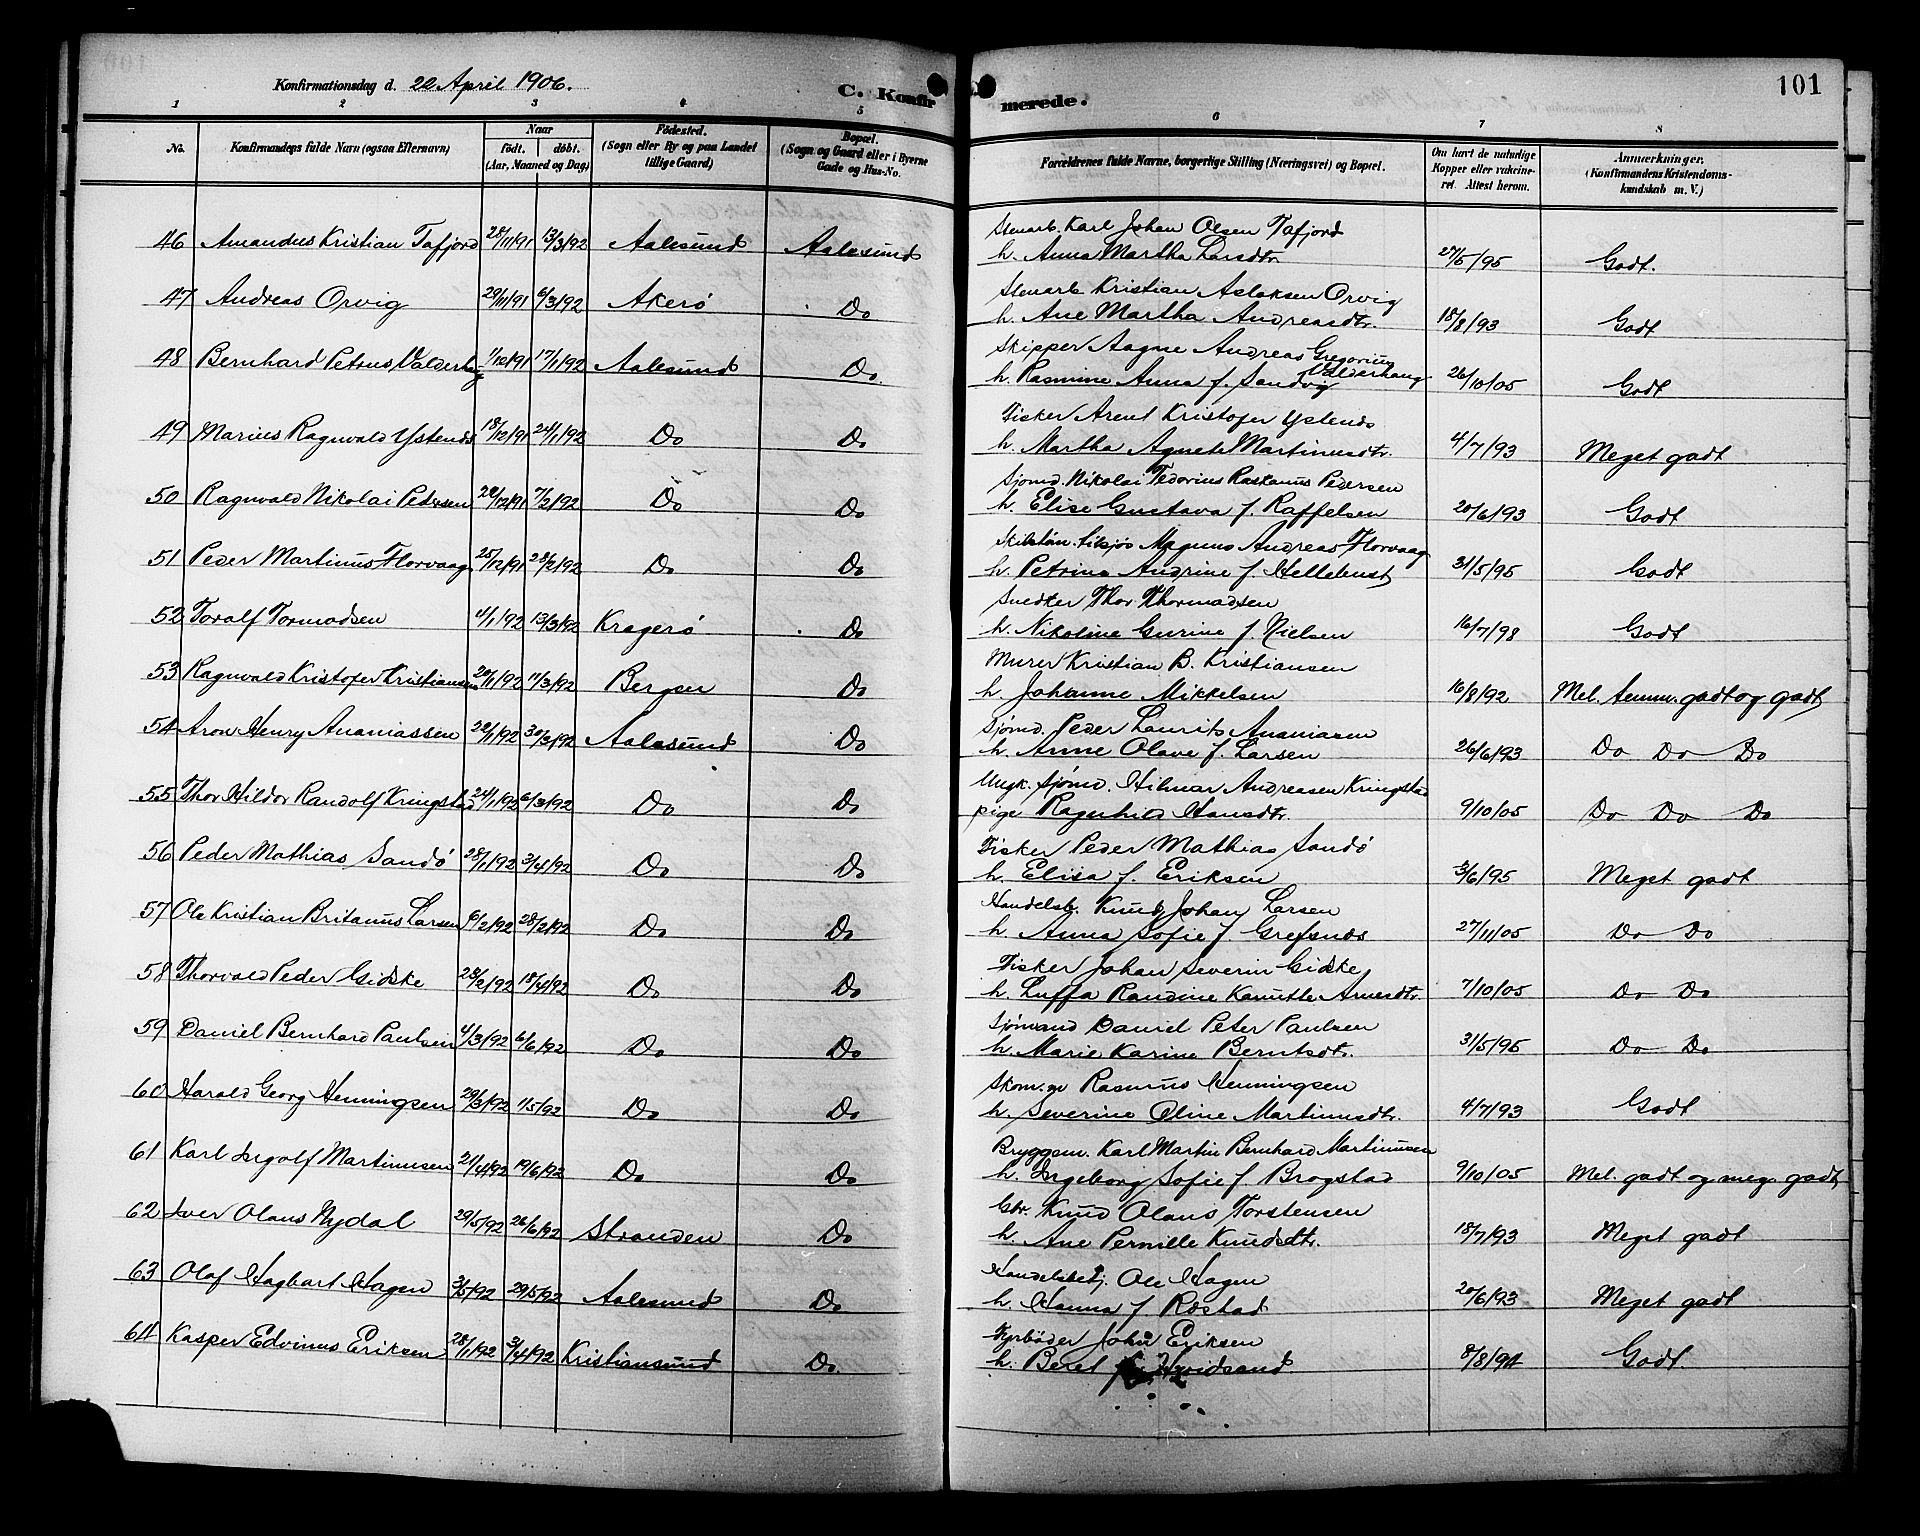 101
Konfirmationsdag d. 22 April 1906.
C. Konfirmerede.
1 2 3 4 5 6 7 8
No.
Konfirmandens fulde Navn (ogsaa Efternavn)
Naar
födt. döbt.
(Aar, Maaned og Dag)
Födested.
(Sogn eller By og paa Landet
tillige Gaard)
Bopæl.
(Sogn og Gaard eller i Byerne
Gade og Hus-No.
Forældrenes fulde Navne, borgerlige Stilling (Næringsvei) og Bopæl.
Om havt de naturlige
Kopper eller vakcine-
ret. Attest herom.
Anmærkninger.
(Konfirmandens Kristendoms-
kundskab m. V.)
46 Amandus Kristian Tafjord 28/11/91 13/3/92 Aalesund Aalesund
Stenarb. Karl Johan Olsen Tafjord
h. Anna Martha Larsdtr. 27/5/95 Godt.
47 Andreas Orvig 29/11/91 6/3/92 Akerö Do
Stenarb Kristian Aslaksen Orvig
h. Ane Martha Andreasdtr. 18/8/93 Godt
48 Bernhard Petrus Valderhaug 1/12/91 17/1/92 Aalesund Do.
Skipper Aagne Andreas Gregorius Valderhaug
h. Rasmine Anna f. Sandvig 26/10/05 Godt
49 Marius Ragnvald Ystenes 18/12/91 24/1/92 Do Do
Fisker Arent Kristofer Ystenes
h. Martha Agnete Martinusdtr. 4/7/93 Meget godt
50 Ragnvald Nikolai Pedersen 22/12/91 7/2/92 Do Do
Sjömd. Nikolai Tedorius Raskanus Pedersen
h. Elise Gustava f. Raffelsen 20/6/93 Godt
51 Peder Martinus Florvaag 25/12/91 28/2/92 Do Do
Magnus Andreas Florvaag
h. Petrine Andrine f. Hellebust 31/5/95 Godt
52 Toralf Tormodsen 4/1/92 13/3/92 Kragerö Do
Snedker Thor Thormodsen
h. Nikoline Gurine f. Nielsen 16/7/98 Godt
53 Ragnvald Kristofer Kristiansen 20/1/92 11/3/92 Bergen Do
Murer Kristian B. Kristiansen
h. Johanne Mikkelsen 16/8/92 Mel. temm. godt og godt
54 Aron Henry Ananiassen 22/1/92 30/3/92 Aalesund Do
Sjömd. Peder Laurits Ananiasen
h. Anne Olave f. Larsen 26/6/93 Do Do Do
55 Thor Hildor Randolf Kringstad 24/1/92 6/3/92 Do Do
Ungk. sjömd. Hilmar Andreasen Kringstad
pige Ragnhild Hansdtr. 9/10/05 Do Do Do
56 Peder Mathias Sandö 28/1/92 3/4/92 Do Do
Fisker Peder Mathias Sandö
h. Elisa f. Eriksen 3/6/95 Meget godt
57 Ole Kristian Britanus Larsen 6/2/92 28/2/92 Do Do
Handelsb. Knud Johan Larsen
h. Anna Sofie f. Grefsnes 27/11/05 Do Do
58 Thorvald Peder Gidske 28/2/92 18/4/92 Do Do
Fisker Johan Severin Gidske
h. Luffa Randine Knutle Arnesdtr. 7/10/05 Do Do
59 Daniel Bernhard Paulsen 4/3/92 6/6/92 Do Do
Sjömand Daniel Peter Paulsen
h. Marie Karine Berntsdtr. 31/5/95 Do Do
60 Harald Georg Henningsen 29/3/92 1/5/92 Do Do
Skom. Rasmus Henningsen
h. Severine Oline Martinusdtr. 4/7/93 Godt
61 Karl Ingolf Martinusen 21/4/92 19/6/92 Do Do
Bryggem. Karl Martin Bernhard Martinusen
h. Ingeborg Sofie f. Brogstad 9/10/05 Mel. godt og meg. godt
62 Iver Olaus Nydal 29/5/92 26/6/92 Stranden Do
Gbr. Knud Olaus Torstensen
h. Ane Pernille Knudsdtr. 18/7/93 Meget godt
63 Olaf Hagbart Hagen 3/5/92 29/5/92 Aalesund Do
Handelsbetj. Ole Hagen
h. Hanna f. Röstad 20/6/93 Meget godt
64 Kasper Edvinus Eriksen 28/1/92 3/4/92 Kristiansund Do.
Fyrböder John Eriksen
h. Beret f. Hvidsand 8/8/94 Godt.